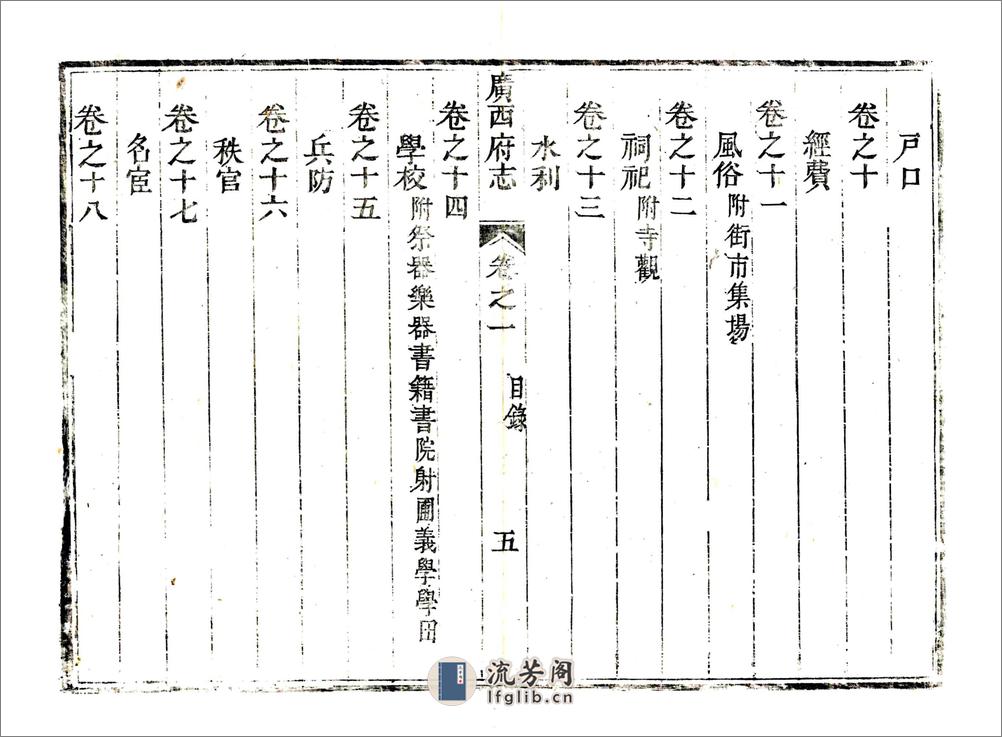 戸口
卷之十
經費
卷之十一
風俗附街市集場
卷之十二
祠祀附寺觀
卷之十三
水利
廣西府志 卷之一 目錄 五
卷之十四
學校附祭器樂器書籍書院射圃義學學田
卷之十五
兵防
卷之十六
秩官
卷之十七
名宦
卷之十八
流芳阁
lfglib.cn